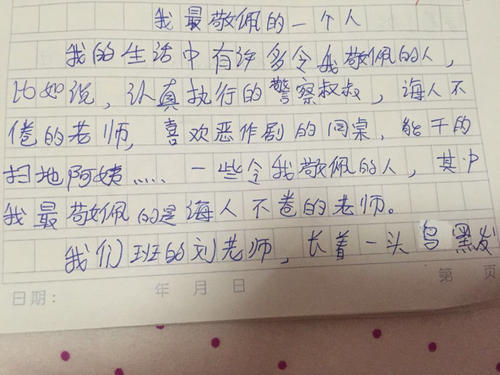 我最敬佩的一个人
我的生活中有许多令我敬佩的人，
比如说，认真执行的警察叔叔，海人不
倦的老师，喜欢恶作剧的同桌，能干的
扫地阿姨……一些令我敬佩的人，其中
我最敬佩的是海人不卷的老师。
我们班的刘老师，长着一头乌黑发
日期： 年 月 日 第 页